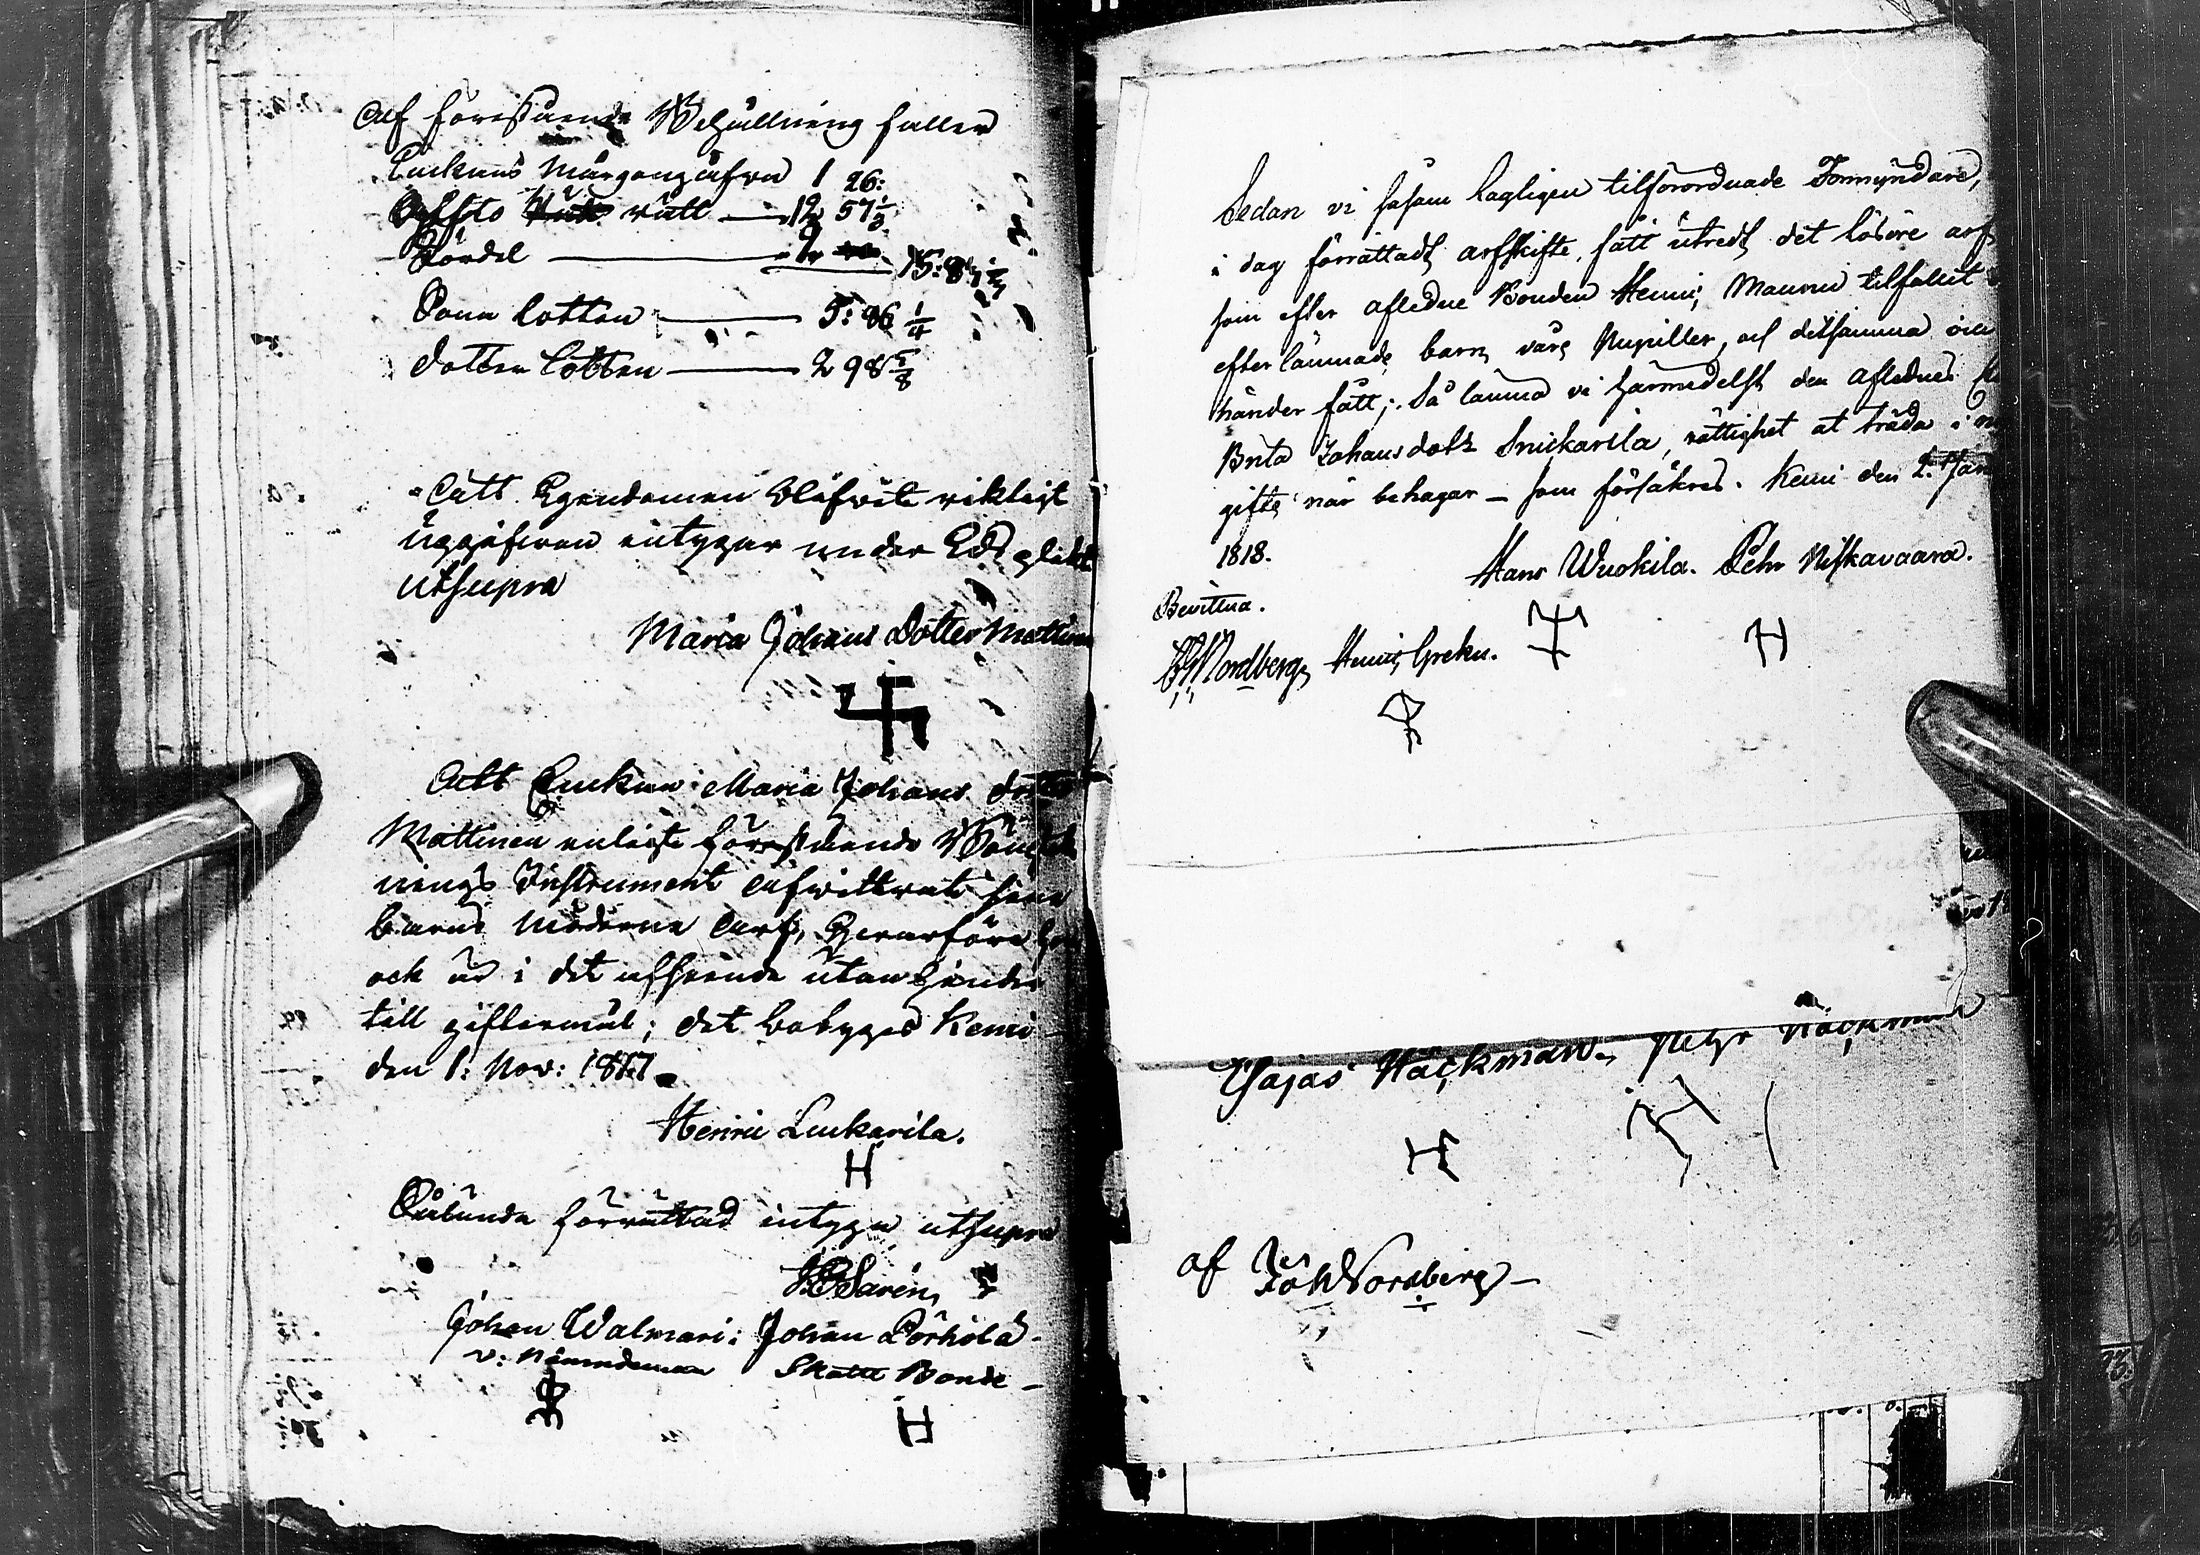 Af förestående Behållning faller
Enckans Morgongåfwa 1 26:
Giffto rätt — 12 57½
Fördel — 2 15:8
Sons lotten — 5: 96 ¼
dotter lotten — 2 98 ⅛
Att Egendomen blifvit riktigt
uppgifven intygar under Eds plikt
utsupra
Maria Johans Dotter Mattinen
Att Enckan Maria Johans dotter
Mattinen enligt förestående
nings Instrument afwittrat sina
barns Möderne Arf, hwarföre
ock är i det afseende utan hinder
till giftermål; det betygas Kemi
den 1: Nov: 1817
Henric Luckarila.
H
Sålunda förrättad intyga utsupra
Sarén
Johan Walmari: Johan Pörhölä
v: Nämndeman Skatte Bonde
H
Sedan vi såsom lagligen tilförordnade Förmyndare,
i dag förrättadt arfskifte, fått utredt det lösöre arf
som efter afledne Bonden Henric Maunu tilfallit
efterlämnade barn, våre Pupiller, och detsamma om
händer fått; Så lämna vi härmedelst den aflednes
Brita Johansdotr Snickarila, rättighet at träda i
gifte när behagar – som försäkras. Kemi den 2. Jan
1818.
Hans Wuokila. Pehr Niskavaara.
Bevittna.
Nordberg, Henric Greku.
H
Esajas Häckman Petr Häckman
H H
af Joh Nordberg